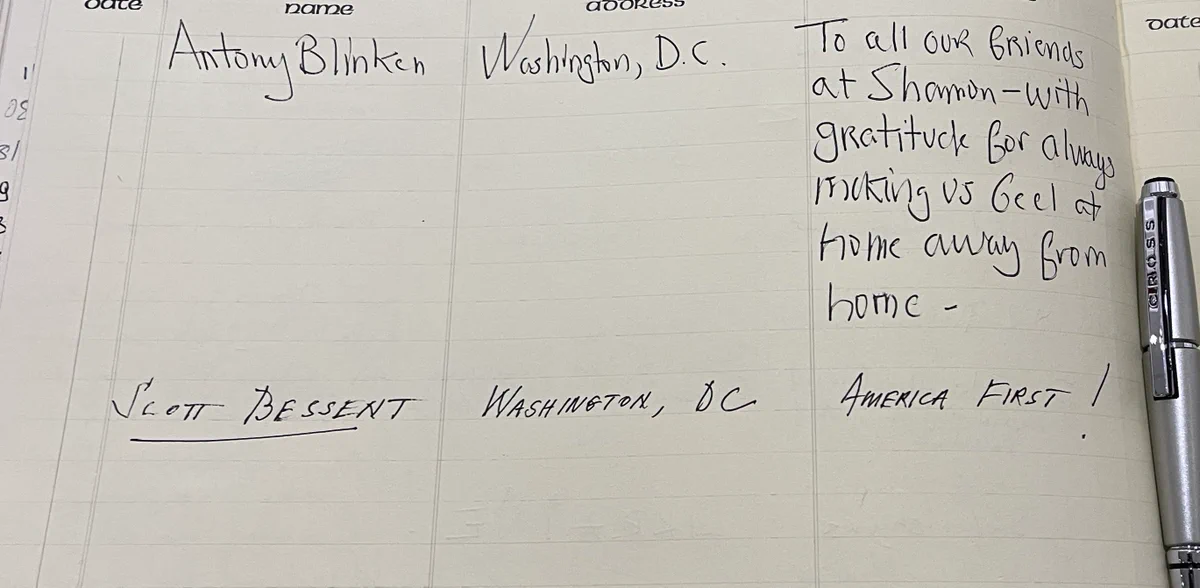 Date name address
Date
Antony Blinken Washington, D.C. To all our friends
at Shannon - with
gratitude for always
making us feel at
home away from
home -
SCOTT BESSENT WASHINGTON, DC AMERICA FIRST!
CROSS